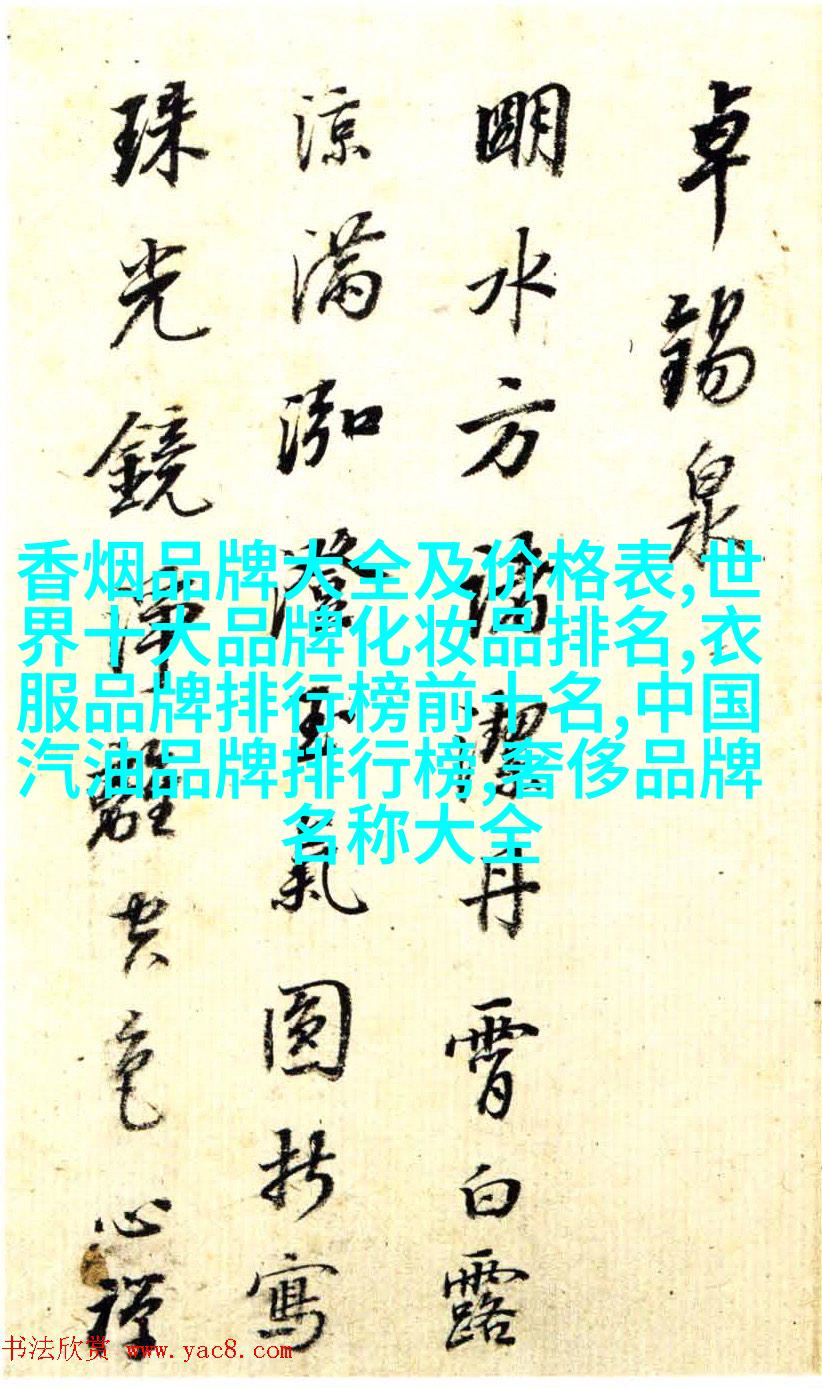 卓錫泉
朙水方諸潔丹霄白露
涼滿泓澄玉氣圓折寫
珠光鏡淨離空色心禪
香烟品牌大全及价格表,世
界十大品牌化妆品排名,衣
服品牌排行榜前十名,中国
汽油品牌排行榜,奢侈品牌
名称大全
书法欣赏 www.yac8.com